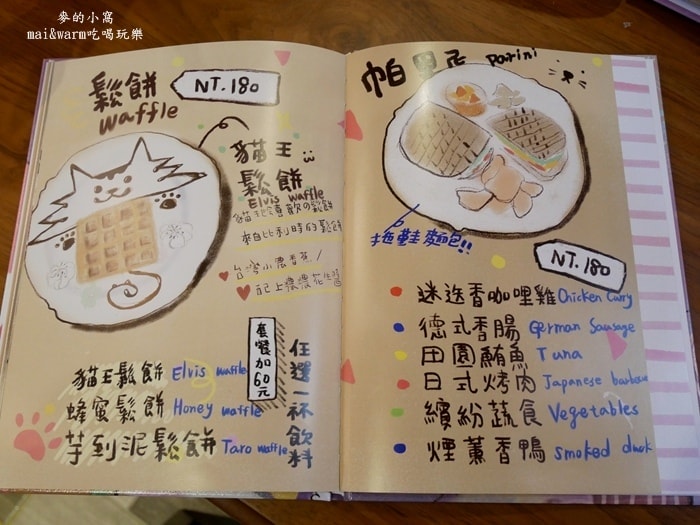 麥的小窩
mai&warm吃喝玩樂
鬆餅
waffle
NT.180
貓王
鬆餅
Elvis waffle
貓王喜歡的鬆餅
來自比利時的鬆餅
台灣小農香蕉/
配上濃濃花生醬
套餐加60元
任選一杯飲料
貓王鬆餅 Elvis waffle
蜂蜜鬆餅 Honey waffle
芋到泥鬆餅 Taro waffle
帕里尼 Parini
拖鞋麵包!!
NT.180
迷迭香咖哩雞 Chicken Curry
德式香腸 German Sausage
田園鮪魚 Tuna
日式烤肉 Japanese
繽紛蔬食 Vegetables
煙薰香鴨 smoked duck